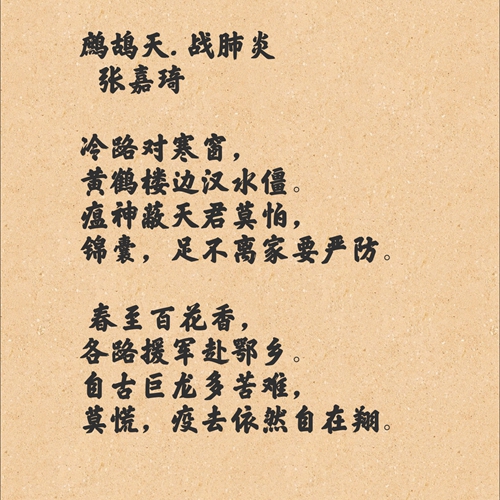 鹧鸪天.战肺炎
张嘉琦
冷路对寒窗，
黄鹤楼边汉水僵。
瘟神蔽天君莫怕，
锦囊，足不离家要严防。
春至百花香，
各路援军赴鄂乡。
自古巨龙多苦难，
莫慌，疫去依然自在翔。